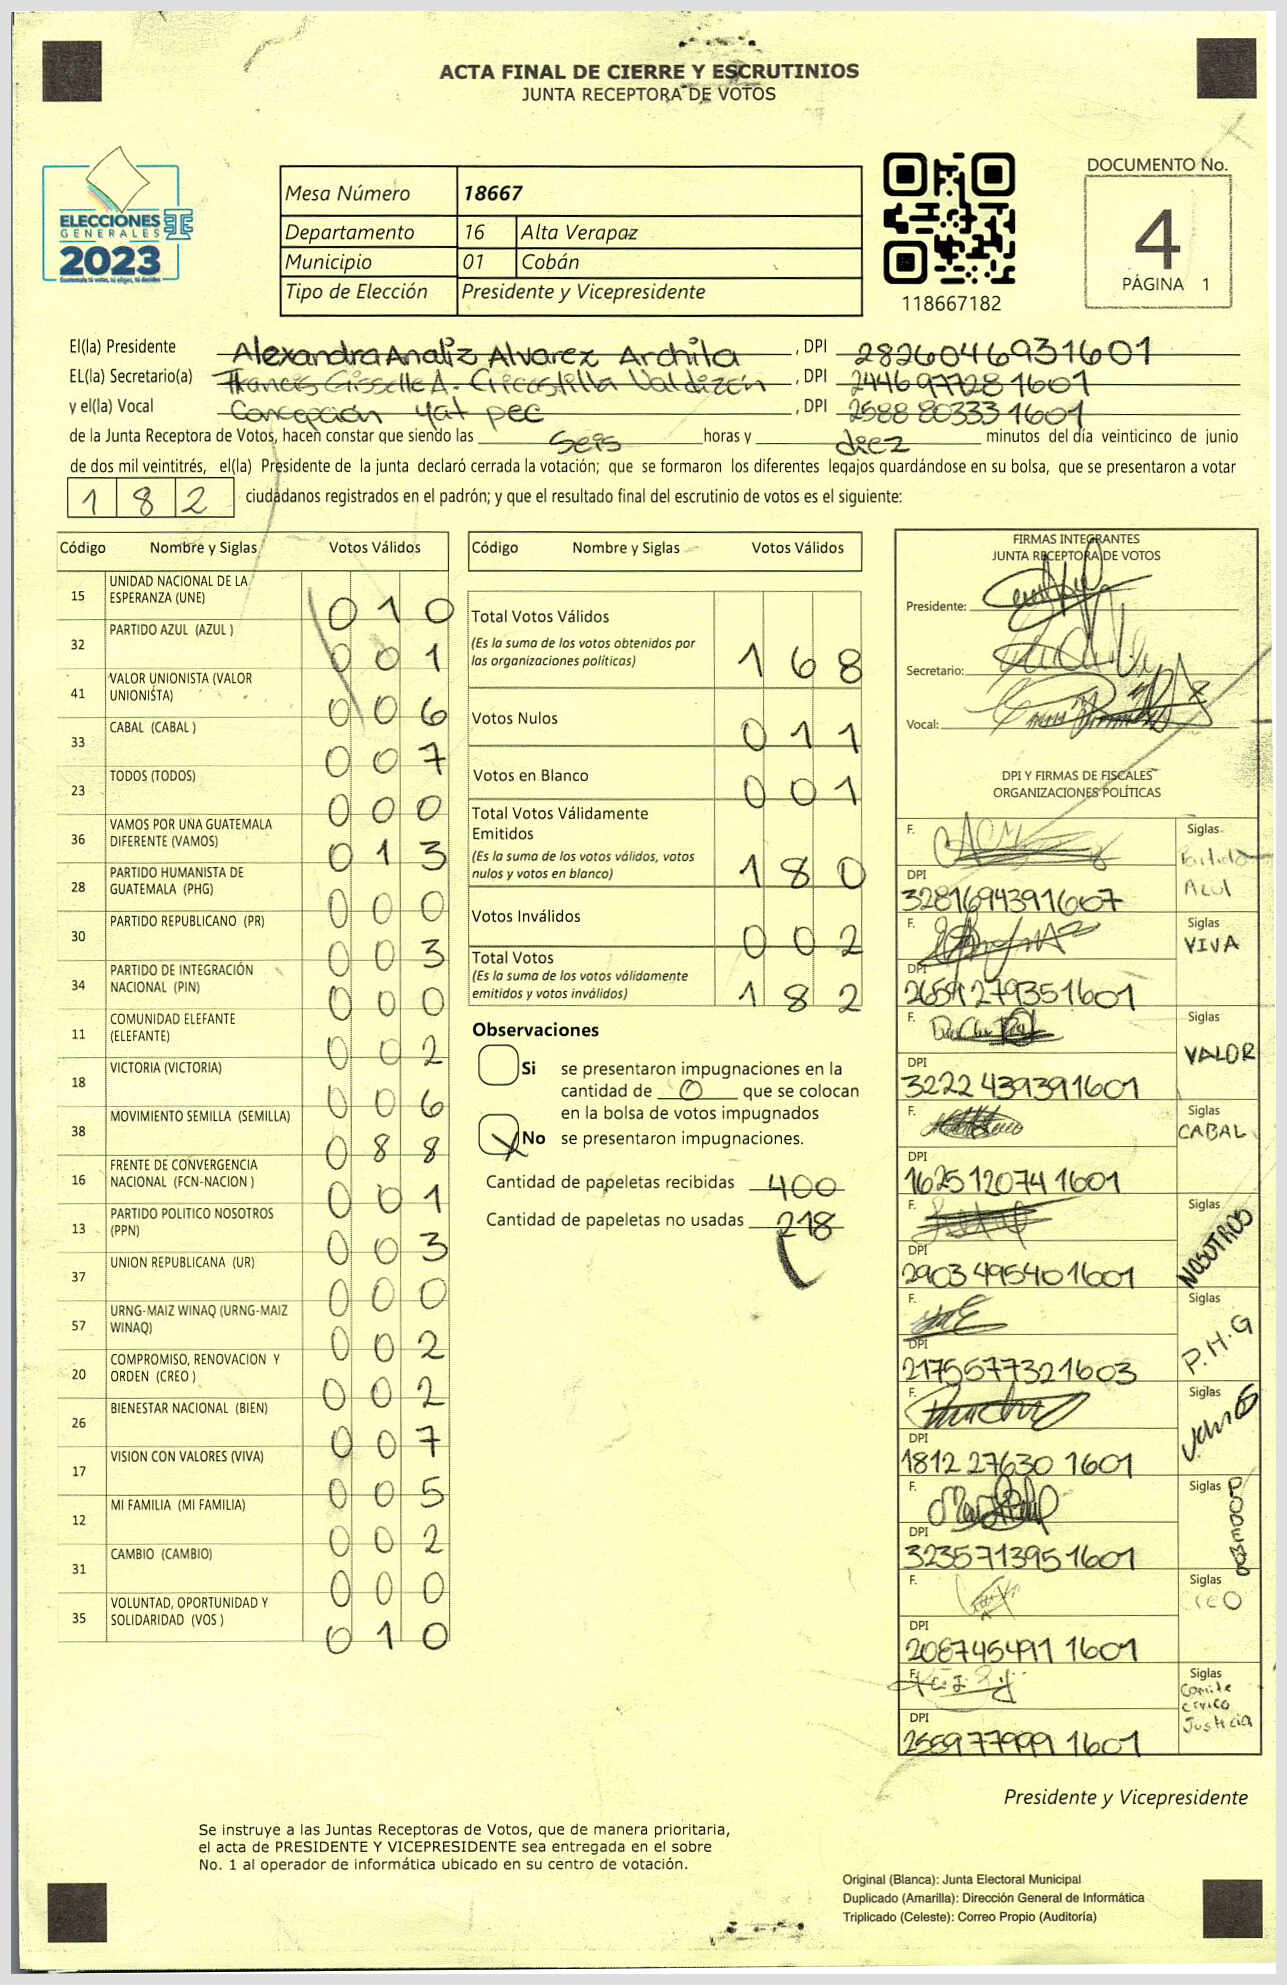 ACTA FINAL DE CIERRE Y ESCRUTINIOS
JUNTA RECEPTORA DE VOTOS
ELECCIONES
GENERALES
2023
Mesa Número 18667
Departamento 16 Alta Verapaz
Municipio 01 Cobán
Tipo de Elección Presidente y Vicepresidente
118667182
DOCUMENTO No.
4
PÁGINA 1
El(la) Presidente Alexandra Analiz Alvarez Archila , DPI 2826046931601
EL(la) Secretario(a) Francis Gisselle A. Valdizón , DPI 2446977281601
y el(la) Vocal Concepción Yat pec , DPI 2588803331601
de la Junta Receptora de Votos, hacen constar que siendo las seis horas y diez minutos del día veinticinco de junio
de dos mil veintitrés, el(la) Presidente de la junta declaró cerrada la votación; que se formaron los diferentes legajos guardándose en su bolsa, que se presentaron a votar
182 ciudadanos registrados en el padrón; y que el resultado final del escrutinio de votos es el siguiente:
Código Nombre y Siglas Votos Válidos
15 UNIDAD NACIONAL DE LA ESPERANZA (UNE) 010
32 PARTIDO AZUL (AZUL ) 001
41 VALOR UNIONISTA (VALOR UNIONISTA) 006
33 CABAL (CABAL ) 007
23 TODOS (TODOS) 000
36 VAMOS POR UNA GUATEMALA DIFERENTE (VAMOS) 013
28 PARTIDO HUMANISTA DE GUATEMALA (PHG) 000
30 PARTIDO REPUBLICANO (PR) 003
34 PARTIDO DE INTEGRACIÓN NACIONAL (PIN) 000
11 COMUNIDAD ELEFANTE (ELEFANTE) 002
18 VICTORIA (VICTORIA) 006
38 MOVIMIENTO SEMILLA (SEMILLA) 088
16 FRENTE DE CONVERGENCIA NACIONAL (FCN-NACION ) 001
13 PARTIDO POLITICO NOSOTROS (PPN) 003
37 UNION REPUBLICANA (UR) 000
57 URNG-MAIZ WINAQ (URNG-MAIZ WINAQ) 002
20 COMPROMISO, RENOVACION Y ORDEN (CREO ) 002
26 BIENESTAR NACIONAL (BIEN) 007
17 VISION CON VALORES (VIVA) 005
12 MI FAMILIA (MI FAMILIA) 002
31 CAMBIO (CAMBIO) 000
35 VOLUNTAD, OPORTUNIDAD Y SOLIDARIDAD (VOS ) 010
Código Nombre y Siglas Votos Válidos
Total Votos Válidos 168
(Es la suma de los votos obtenidos por
las organizaciones políticas)
Votos Nulos 011
Votos en Blanco 001
Total Votos Válidamente
Emitidos 180
(Es la suma de los votos válidos, votos
nulos y votos en blanco)
Votos Inválidos 002
Total Votos 182
(Es la suma de los votos válidamente
emitidos y votos inválidos)
Observaciones
Si se presentaron impugnaciones en la
cantidad de 0 que se colocan
en la bolsa de votos impugnados
X No se presentaron impugnaciones.
Cantidad de papeletas recibidas 400
Cantidad de papeletas no usadas 218
FIRMAS INTEGRANTES
JUNTA RECEPTORA DE VOTOS
Presidente:
Secretario:
Vocal:
DPI Y FIRMAS DE FISCALES
ORGANIZACIONES POLÍTICAS
F. Siglas Partido Azul
DPI 3281694391607
F. Siglas VIVA
DPI 26591279351601
F. Siglas VALOR
DPI 3222439391601
F. Siglas CABAL
DPI 1625120741601
F. Siglas NOSOTROS
DPI 2903495401601
F. Siglas P.H.G
DPI 2175577321603
F. Siglas
DPI 1812276301601
F. Siglas PODEMOS
DPI 3235713951601
F. Siglas CREO
DPI 2087454911601
F. Siglas Comite civico Justicia
DPI 2559779991601
Presidente y Vicepresidente
Se instruye a las Juntas Receptoras de Votos, que de manera prioritaria,
el acta de PRESIDENTE Y VICEPRESIDENTE sea entregada en el sobre
No. 1 al operador de informática ubicado en su centro de votación.
Original (Blanca): Junta Electoral Municipal
Duplicado (Amarilla): Dirección General de Informática
Triplicado (Celeste): Correo Propio (Auditoría)